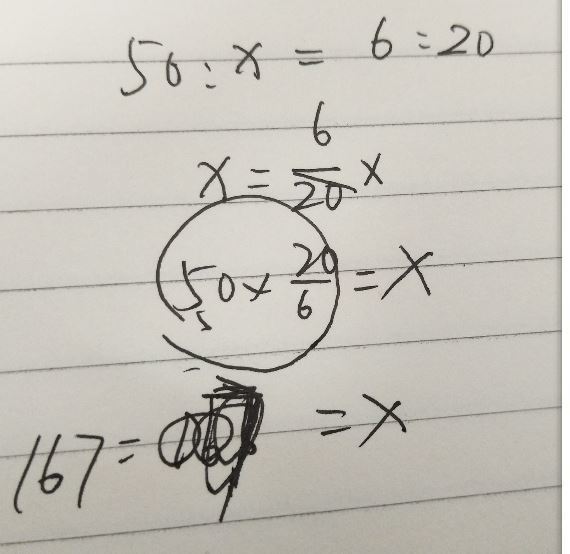 50 : x = 6 : 20
x = 6/20 x
50 × 20/6 = x
167 = = x